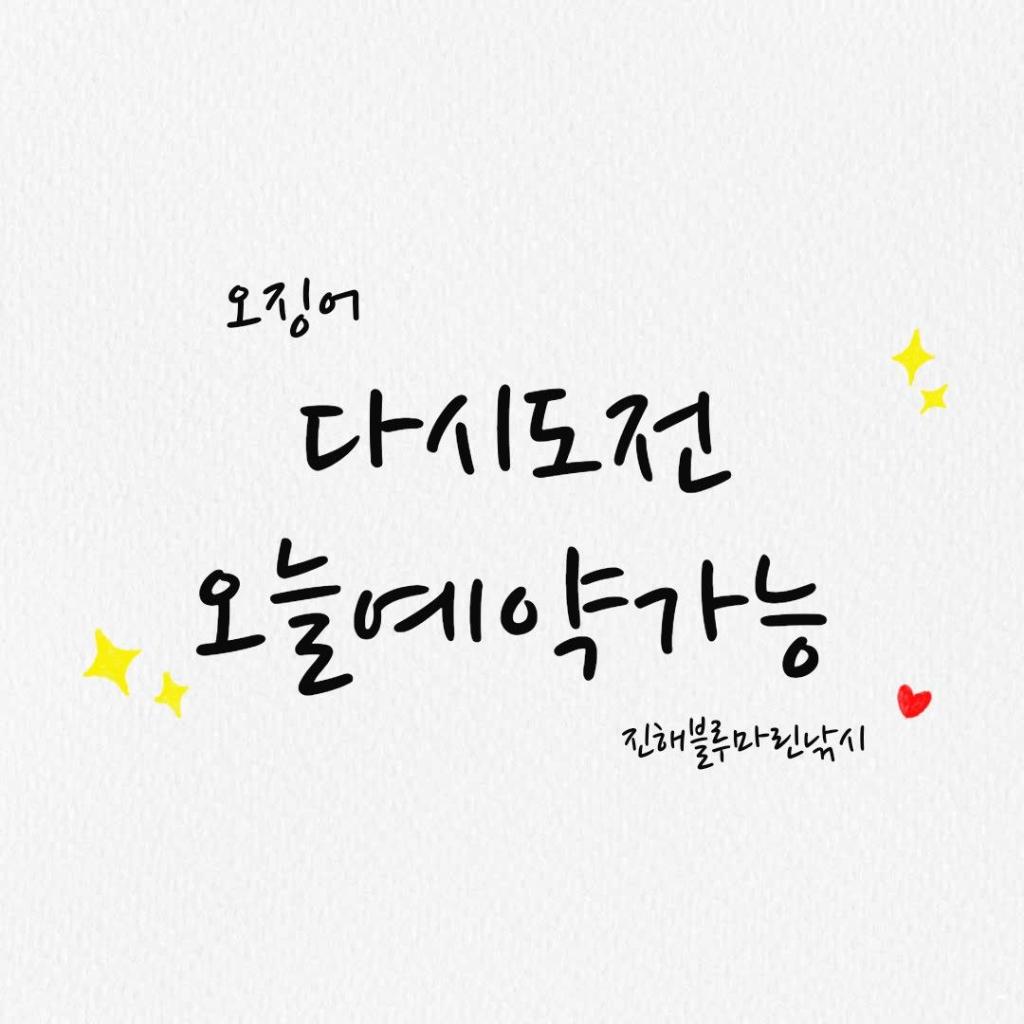 오징어
다시도전
오늘예약가능
진해블루마린낚시